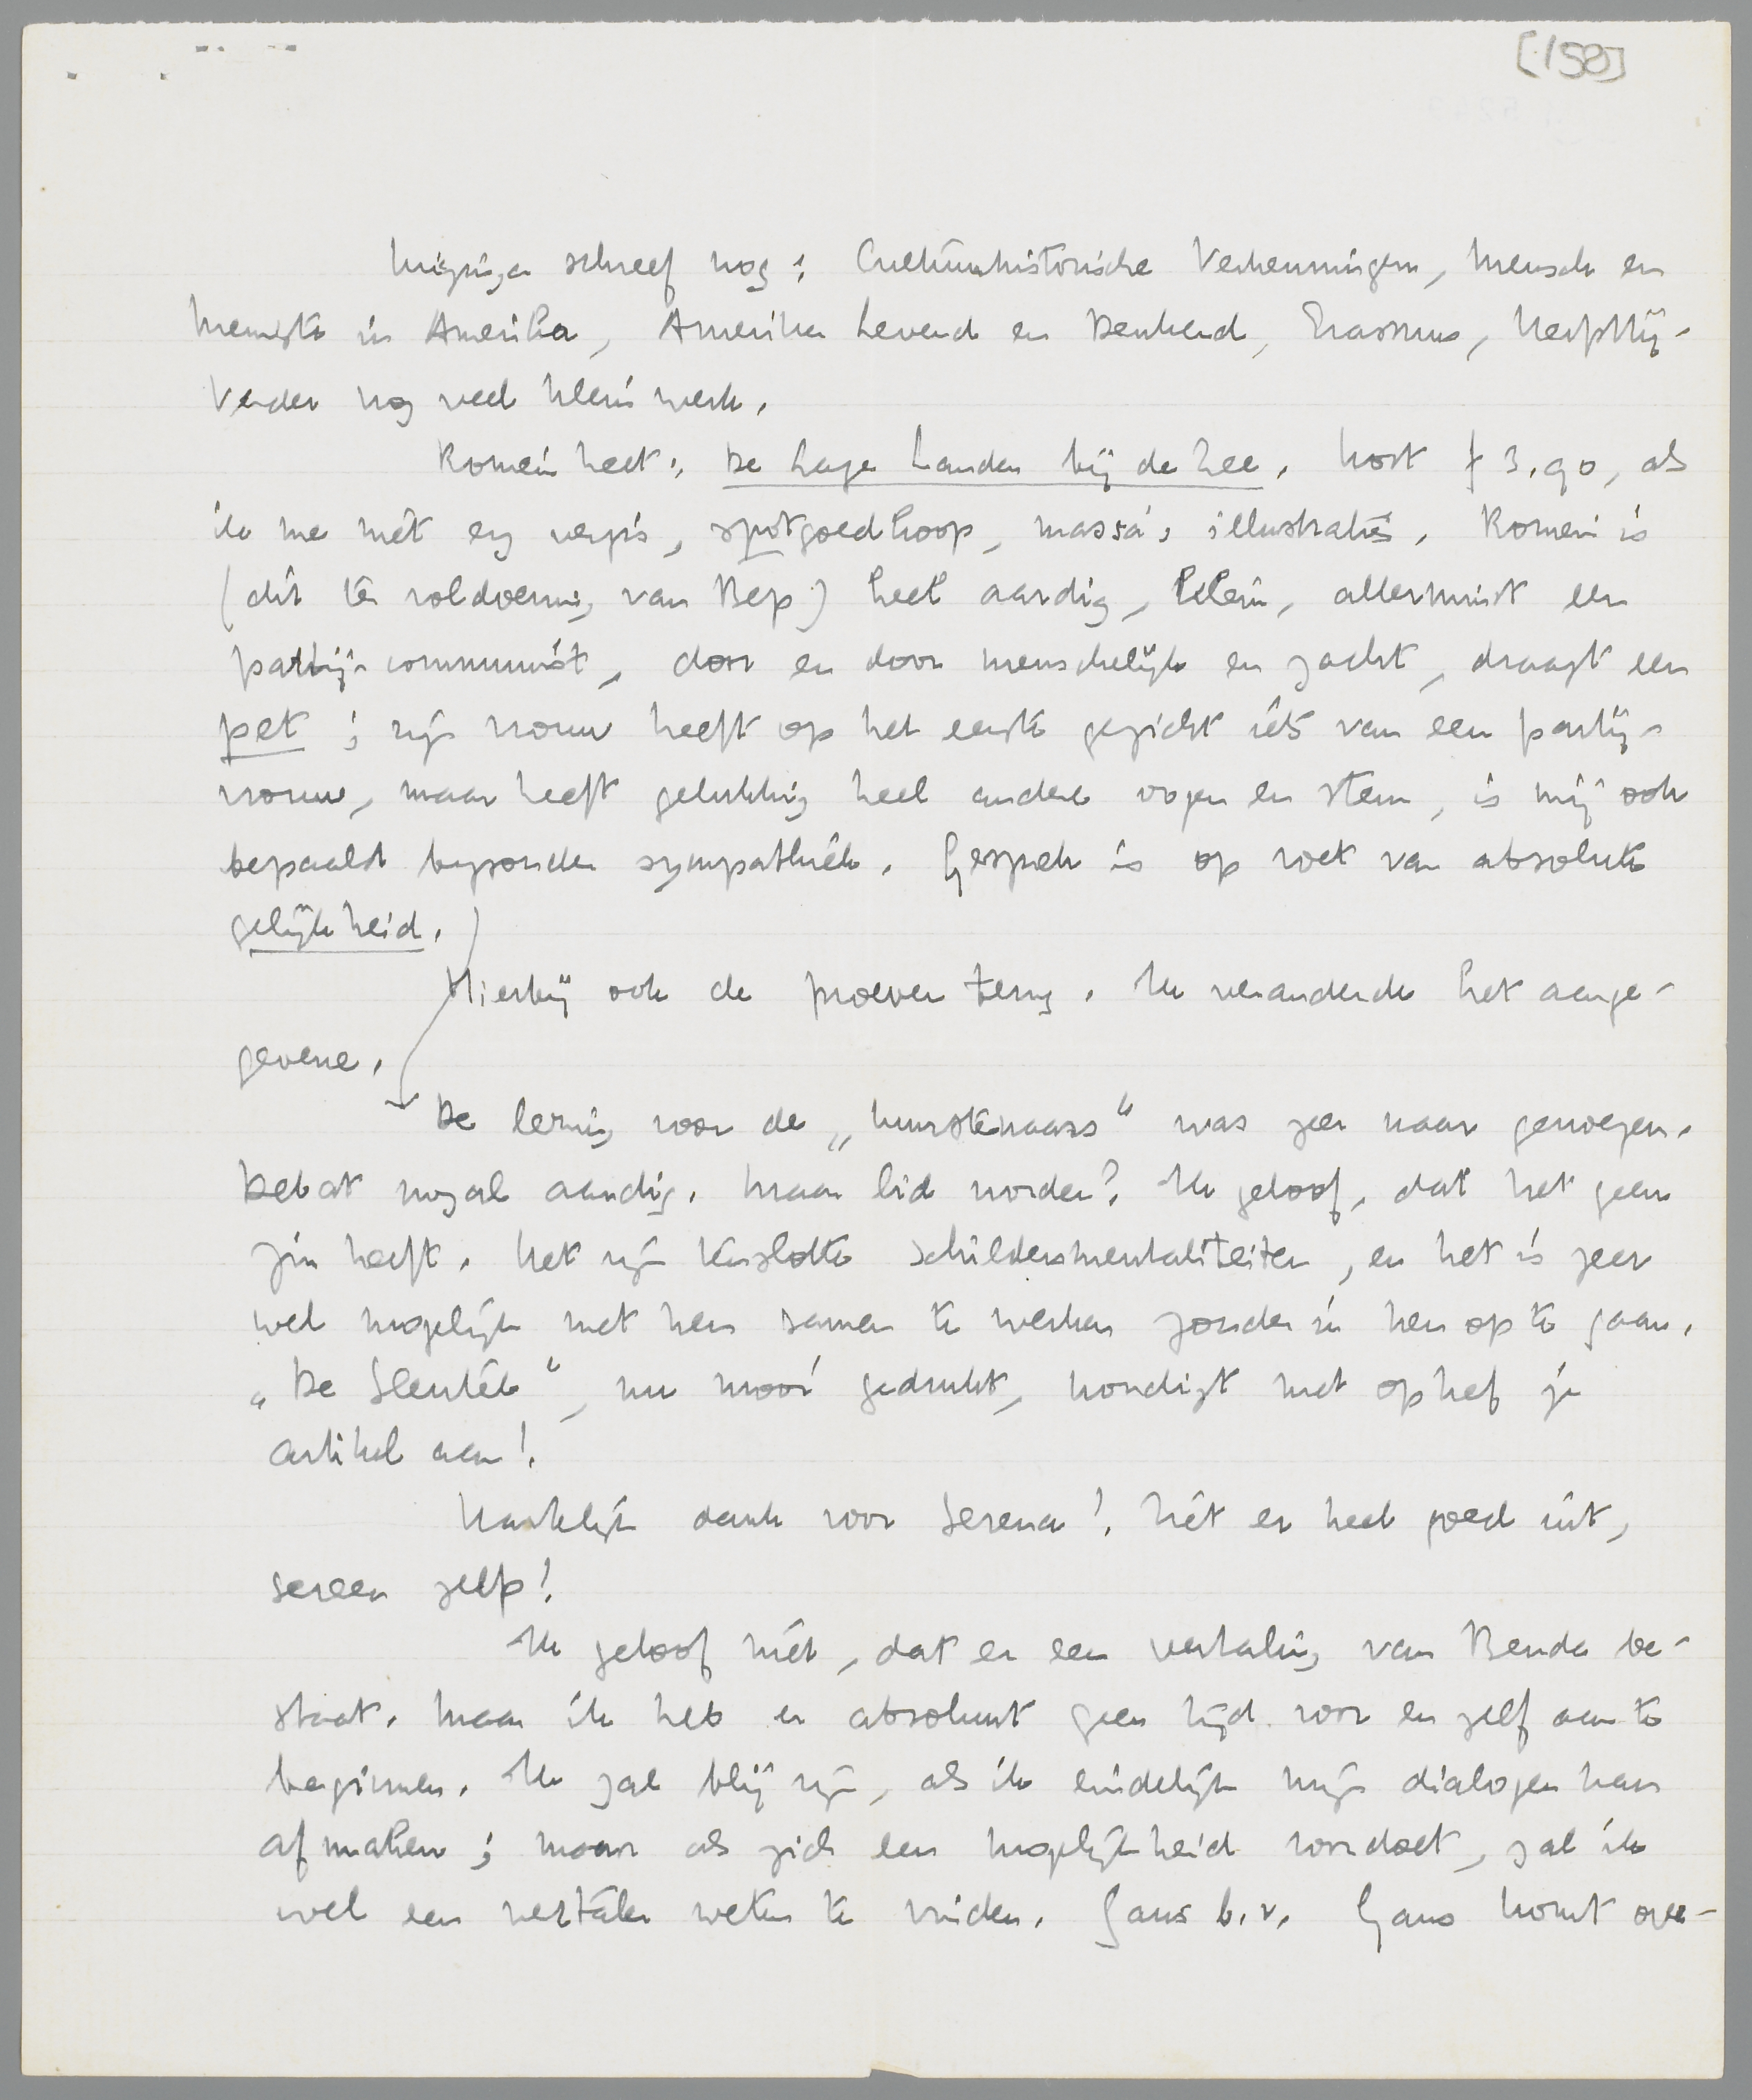 [158]
Huizinga schreef nog: Cultuurhistorische Verkenningen, Mensch en
Menigte in Amerika, Amerika Levend en Denkend, Erasmus, Herfsttij.
Verder nog veel klein werk.
Romein heet: De Lage Landen bij de Zee. Kost f 3.90, als
ik me niet erg vergis, spotgoedkoop, massa's illustraties. Romein is
(dit ter voldoening van Bep) heel aardig, klein, allerminst een
partij-communist, door en door menschelijk en zacht, draagt een
pet; zijn vrouw heeft op het eerste gezicht iets van een partij-
vrouw, maar heeft gelukkig heel andere oogen en stem, is mij ook
bepaald byzonder sympathiek. Gesprek is op voet van absolute
gelijkheid.
Hierbij ook de proeven terug. Ik veranderde het aange-
gevene.
De lezing voor de „kunstenaars" was zeer naar genoegen.
Debat nogal aardig. Maar lid worden? Ik geloof, dat het geen
zin heeft. Het zijn tenslotte schildersmentaliteiten, en het is zeer
wel mogelijk met hen samen te werken zonder in hen op te gaan.
„De Sleutel", nu mooi gedrukt, kondigt met ophef je
artikel aan!
Hartelijk dank voor Serena! Ziet er heel goed uit,
sereen zelfs!
Ik geloof niet, dat er een vertaling van Benda be-
staat. Maar ik heb er absoluut geen tijd voor er zelf aan te
beginnen. Ik zal blij zijn, als ik eindelijk mijn dialogen kan
afmaken; maar als zich een mogelijkheid voordoet, zal ik
wel een vertaler weten te vinden. Gans b.v. Gans komt over-